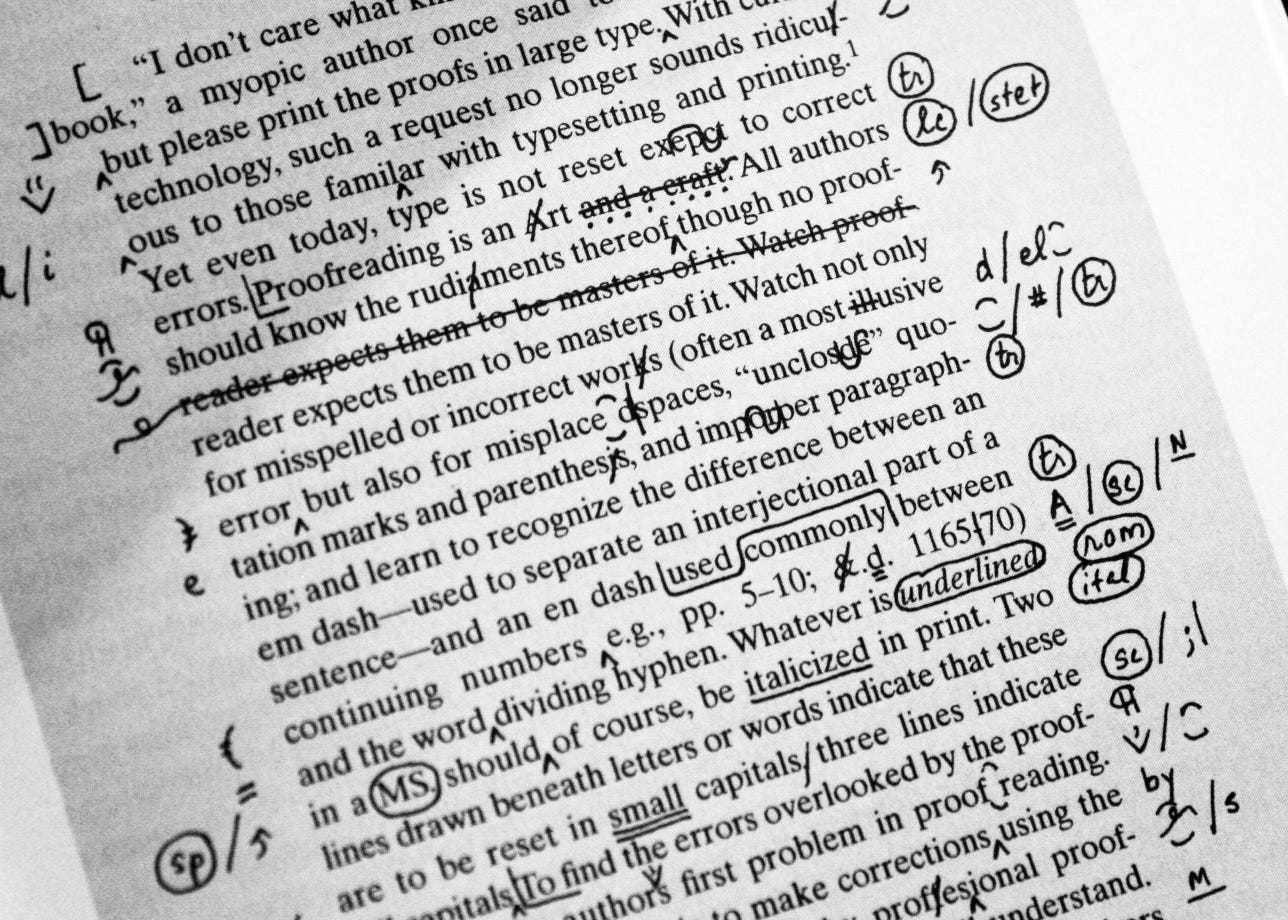 [ “I don’t care what
] book,” a myopic author once said
but please print the proofs in large type. With
technology, such a request no longer sounds ridicul-
ous to those familar with typesetting and printing.1
Yet even today, type is not reset exepct to correct tr
errors. Proofreading is an Art and a craft. All authors lc / stet
should know the rudiaments thereof though no proof-
reader expects them to be masters of it. Watch proof-
reader expects them to be masters of it. Watch not only
for misspelled or incorrect works (often a most illusive d / el
error but also for misplace dspaces, “unclosde” quo- # / tr
e tation marks and parenthesis, and imporper paragraph- tr
ing; and learn to recognize the difference between an
em dash—used to separate an interjectional part of a
sentence—and an en dash used commonly between tr
continuing numbers e.g., pp. 5–10; a.d. 1165/70) A / sc / N
and the word dividing hyphen. Whatever is underlined rom
in a MS. should of course, be italicized in print. Two ital
sp / lines drawn beneath letters or words indicate that these
are to be reset in small capitals/three lines indicate sc / ;/
capitals To find the errors overlooked by the proof-
authors first problem in proof reading.
to make corrections using the by
proffesional proof- / s
understand.
M